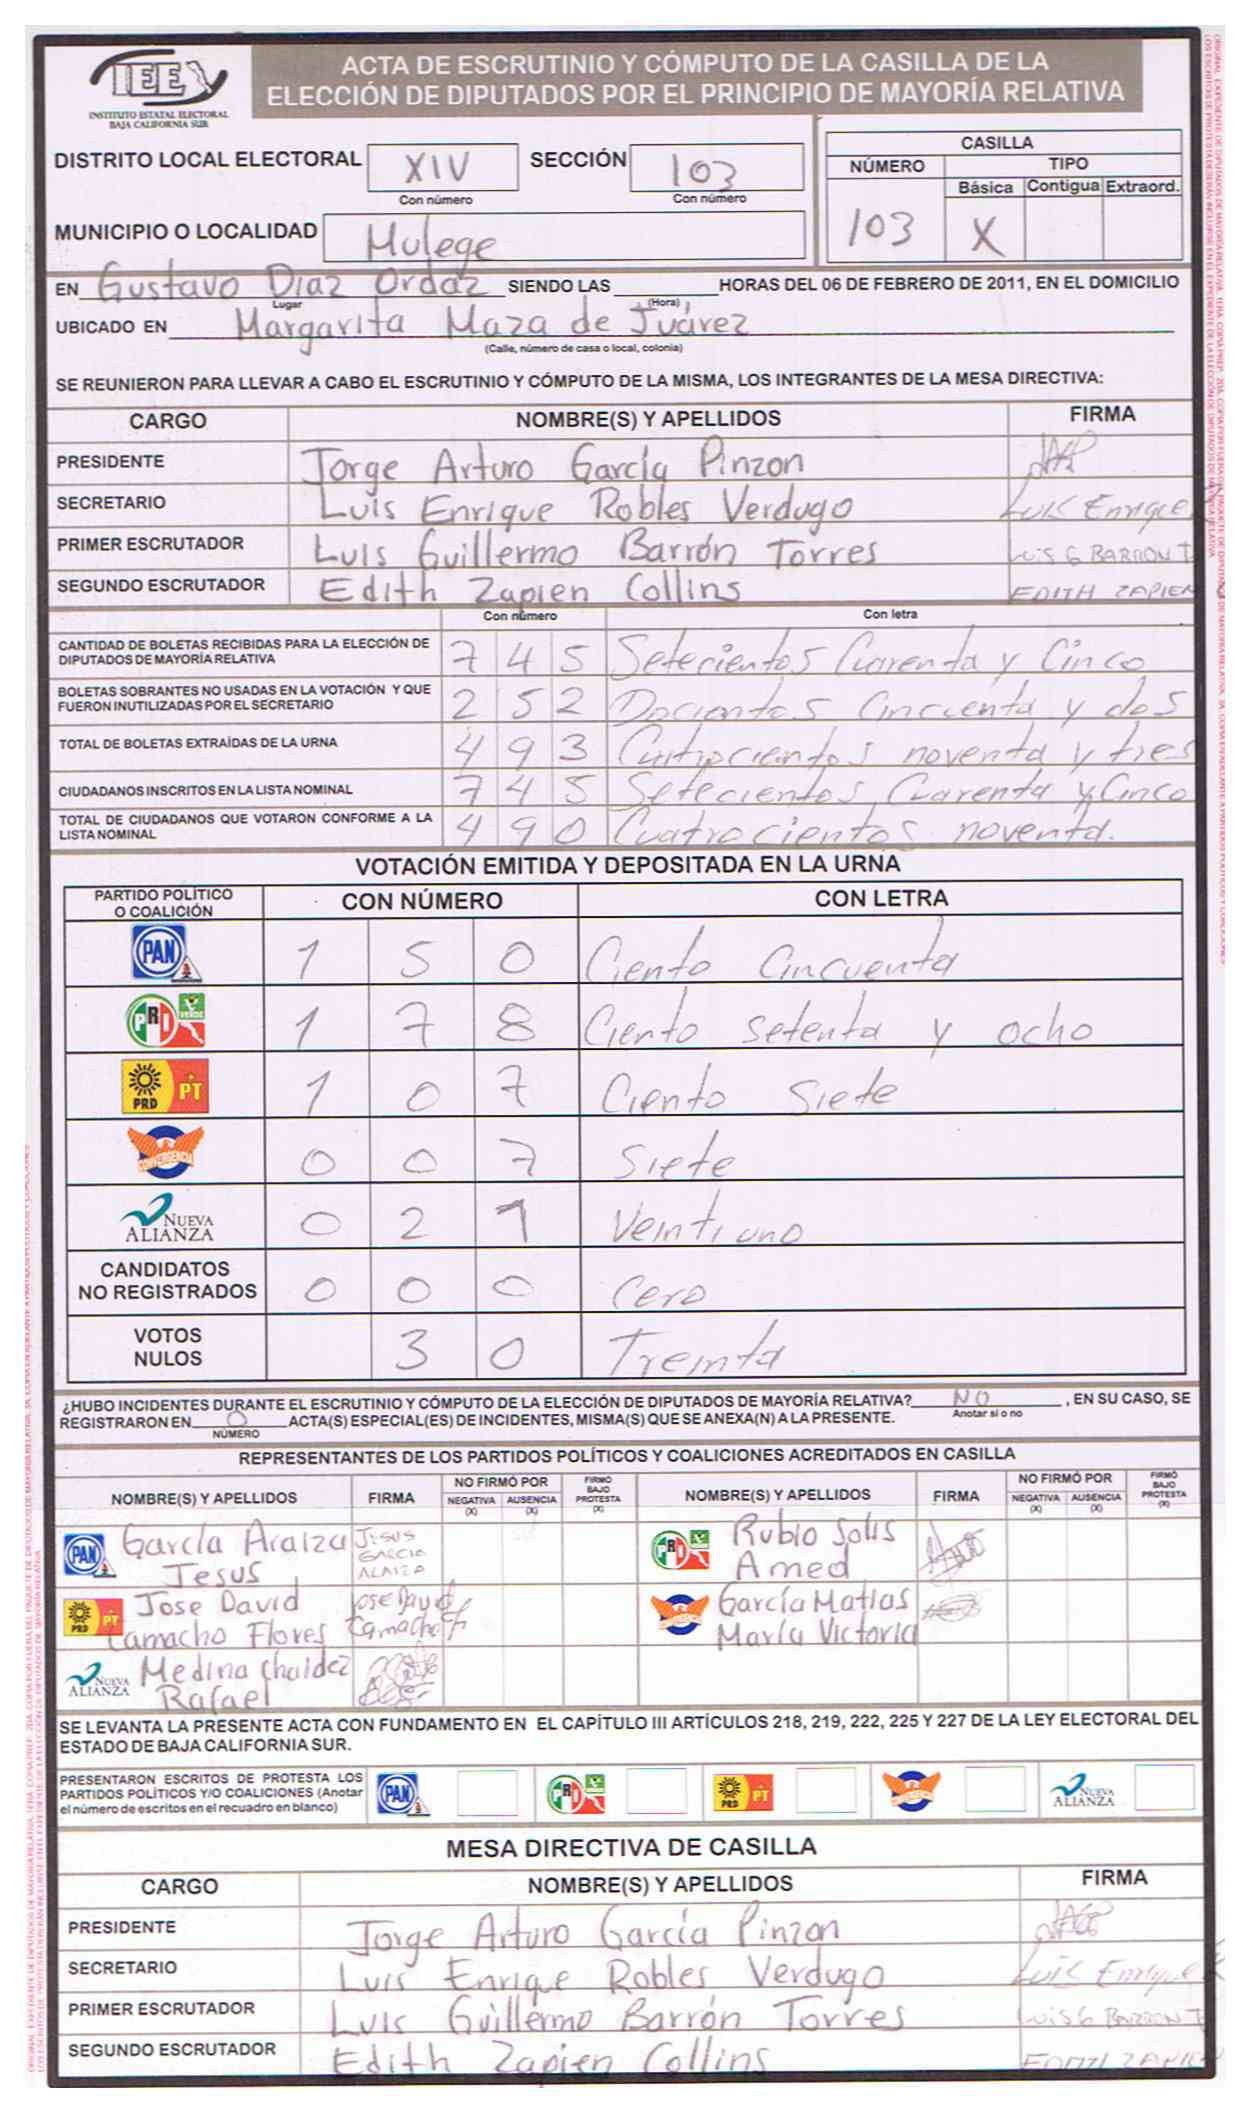 IEE
INSTITUTO ESTATAL ELECTORAL
BAJA CALIFORNIA SUR
ACTA DE ESCRUTINIO Y CÓMPUTO DE LA CASILLA DE LA
ELECCIÓN DE DIPUTADOS POR EL PRINCIPIO DE MAYORÍA RELATIVA
DISTRITO LOCAL ELECTORAL XIV SECCIÓN 103
Con número Con número
CASILLA
NÚMERO TIPO
Básica Contigua Extraord.
103 X
MUNICIPIO O LOCALIDAD Mulege
EN Gustavo Díaz Ordaz SIENDO LAS HORAS DEL 06 DE FEBRERO DE 2011, EN EL DOMICILIO
Lugar (Hora)
UBICADO EN Margarita Maza de Juárez
(Calle, número de casa o local, colonia)
SE REUNIERON PARA LLEVAR A CABO EL ESCRUTINIO Y CÓMPUTO DE LA MISMA, LOS INTEGRANTES DE LA MESA DIRECTIVA:
CARGO NOMBRE(S) Y APELLIDOS FIRMA
PRESIDENTE Jorge Arturo García Pinzon
SECRETARIO Luis Enrique Robles Verdugo Luis Enrique
PRIMER ESCRUTADOR Luis Guillermo Barrón Torres Luis G BARRON T
SEGUNDO ESCRUTADOR Edith Zapien Collins EDITH ZAPIEN
Con número Con letra
CANTIDAD DE BOLETAS RECIBIDAS PARA LA ELECCIÓN DE
DIPUTADOS DE MAYORÍA RELATIVA 7 4 5 Setecientos Cuarenta y Cinco
BOLETAS SOBRANTES NO USADAS EN LA VOTACIÓN Y QUE
FUERON INUTILIZADAS POR EL SECRETARIO 2 5 2 Docientos Cincuenta y dos
TOTAL DE BOLETAS EXTRAÍDAS DE LA URNA 4 9 3 Cuatrocientos noventa y tres
CIUDADANOS INSCRITOS EN LA LISTA NOMINAL 7 4 5 Setecientos Cuarenta y Cinco
TOTAL DE CIUDADANOS QUE VOTARON CONFORME A LA
LISTA NOMINAL 4 9 0 Cuatrocientos noventa.
VOTACIÓN EMITIDA Y DEPOSITADA EN LA URNA
PARTIDO POLÍTICO
O COALICIÓN CON NÚMERO CON LETRA
PAN 1 5 0 Ciento Cincuenta
PRI VERDE 1 7 8 Ciento setenta y ocho
PRD PT 1 0 7 Ciento Siete
CONVERGENCIA 0 0 7 Siete
NUEVA ALIANZA 0 2 1 Veintiuno
CANDIDATOS
NO REGISTRADOS 0 0 0 Cero
VOTOS
NULOS 3 0 Treinta
¿HUBO INCIDENTES DURANTE EL ESCRUTINIO Y CÓMPUTO DE LA ELECCIÓN DE DIPUTADOS DE MAYORÍA RELATIVA? NO , EN SU CASO, SE
Anotar si o no
REGISTRARON EN 0 ACTA(S) ESPECIAL(ES) DE INCIDENTES, MISMA(S) QUE SE ANEXA(N) A LA PRESENTE.
NÚMERO
REPRESENTANTES DE LOS PARTIDOS POLÍTICOS Y COALICIONES ACREDITADOS EN CASILLA
NOMBRE(S) Y APELLIDOS FIRMA NO FIRMÓ POR NEGATIVA (X) AUSENCIA (X) FIRMÓ BAJO PROTESTA (X) NOMBRE(S) Y APELLIDOS FIRMA NO FIRMÓ POR NEGATIVA (X) AUSENCIA (X) FIRMÓ BAJO PROTESTA (X)
PAN García Araiza Jesus JESUS GARCIA ARAIZA
PRI Rubio Solis Amed
PRD PT Jose David Camacho Flores Jose David Camacho
CONVERGENCIA García Matias María Victoria
NUEVA ALIANZA Medina Chaidez Rafael
SE LEVANTA LA PRESENTE ACTA CON FUNDAMENTO EN EL CAPÍTULO III ARTÍCULOS 218, 219, 222, 225 Y 227 DE LA LEY ELECTORAL DEL
ESTADO DE BAJA CALIFORNIA SUR.
PRESENTARON ESCRITOS DE PROTESTA LOS
PARTIDOS POLÍTICOS Y/O COALICIONES (Anotar
el número de escritos en el recuadro en blanco)
PAN PRI PRD PT CONVERGENCIA NUEVA ALIANZA
MESA DIRECTIVA DE CASILLA
CARGO NOMBRE(S) Y APELLIDOS FIRMA
PRESIDENTE Jorge Arturo García Pinzon
SECRETARIO Luis Enrique Robles Verdugo Luis Enrique
PRIMER ESCRUTADOR Luis Guillermo Barrón Torres Luis G BARRON T
SEGUNDO ESCRUTADOR Edith Zapien Collins EDITH ZAPIEN